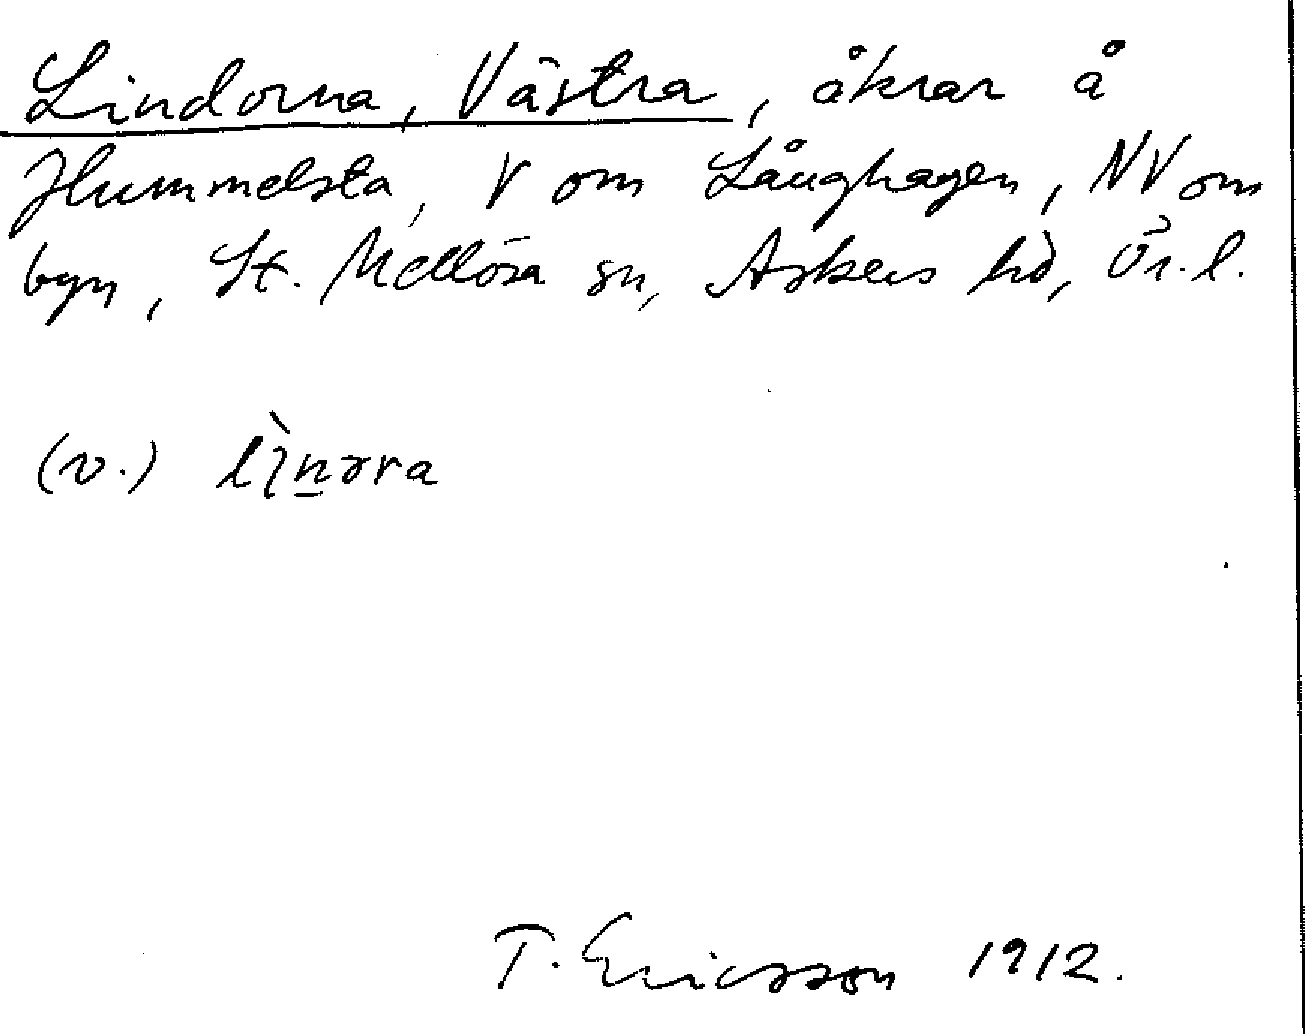 Lindorna, Västra, åkrar å
Hummelsta, V om Långhagen, NV om
byn, St. Mellösa sn, Askers hd, Ör. l.
(v.) lìnərra
T. Ericsson 1912.